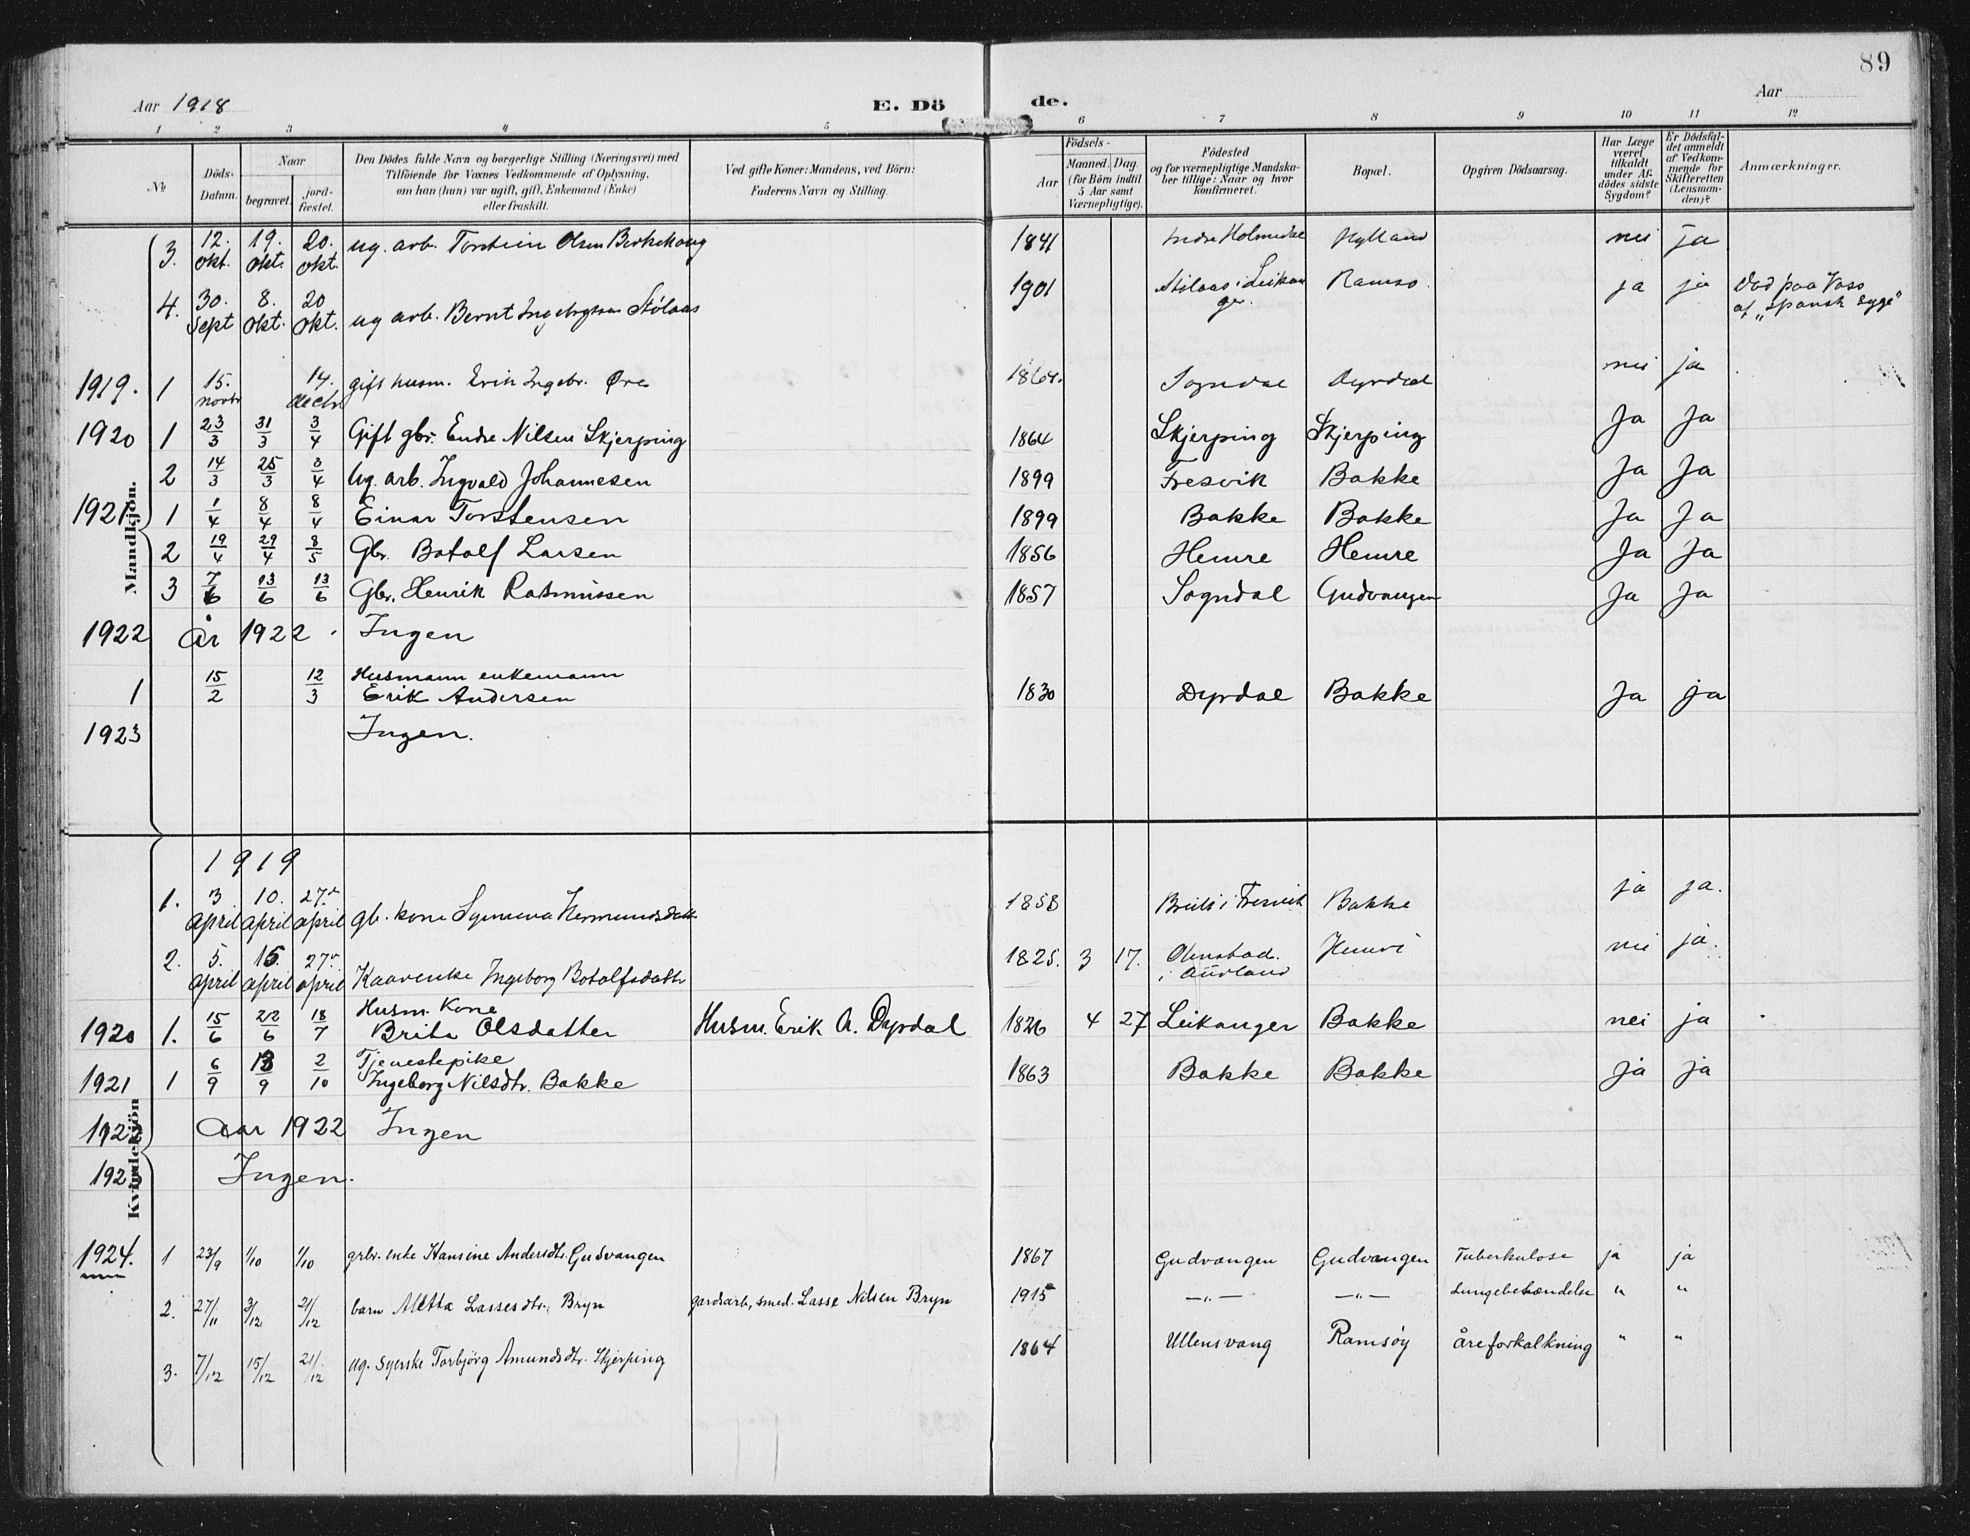 89
Aar 1918 E. Dö de. Aar
1 2 3 4 5 6 7 8 9 10 11 12
No
Döds-Datum.
Naar
begravet.
jord-fæstet.
Den Dödes fulde Navn og borgerlige Stilling (Næringsvei) med
Tilföiende for Voxnes Vedkommende af Oplysning,
om han (hun) var ugift, gift, Enkemand (Enke)
eller fraskilt.
Ved gifte Koner: Mandens, ved Börn:
Faderens Navn og Stilling.
Födsels-
Aar
Maaned. Dag
(for Börn indtil
5 Aar samt
Værnepligtige).
Födested
og for værnepligtige Mandska-
ber tillige: Naar og hvor
konfirmeret.
Bopæl.
Opgiven Dödsaarsag.
Har Læge
været
tilkaldt
under Af-
dödes sidste
Sygdom?
Er Dödsfal-
det anmeldt
af Vedkom-
mende for
Skifteretten
(Lensman-
den)?
Anmærkninger.
Mandkjön.
3. 12. okt. 19. okt. 20. okt. ug. arb. Torstein Olsen 1841 Indre Holmedal Hylland nei ja
4. 30. Sept 8. okt. 20 okt. ug arb. Bernt Stølaas 1901 Stølaas i Leikanger. Ramsø. ja ja Død paa Voss
af „spansk syge"
1919. 1 15. novbr 14. decbr gift husm. Erik Ingebr. Øre 1864. Sogndal Dyrdal nei ja
1920 1 23/3 31/3 3/4 Gift gbr. Endre Nilsen Skjerping 1864 Skjerping Skjerping Ja Ja
2 14/3 25/3 3/4 Ug. arb. Ingvald Johannesen 1899 Fresvik Bakke Ja Ja
1921 1 1/4 8/4 8/4 Einar Torstensen 1899 Bakke Bakke Ja Ja
2 19/4 29/4 8/5 Gbr. Botolf Larsen 1856 Hemre Hemre Ja Ja
3 7/6 13/6 13/6 Gbr. Henrik Rasmussen 1857 Sogndal Gudvangen Ja Ja
1922 År 1922. Ingen
1 15/2 12/3 Husmann enkemann
Erik Andersen 1830 Dyrdal Bakke Ja ja
1923 Ingen.
Kvindekjön
1919
1. 3 april 10. april 27.de april gb. kone Synneva Hermundsdatt. 1858 i Fresvik Bakke ja ja.
2. 5. april 15. april 27de april Kaarenke Ingeborg Botolfsdatter 1825. 3 17. i Aurland nei ja.
1920 1. 15/6 22/6 18/7 Husm. Kone
Brita Olsdatter Husm. Erik A. Dyrdal 1826 4 27 Leikanger Bakke nei ja
1921 1 6/9 13/9 2/10 Tjenestepike
Ingeborg Nilsdtr. Bakke 1863 Bakke Bakke ja ja
1922 Aar 1922 Ingen
1923 Ingen.
1924. 1 23/9 1/10 1/10 grbr. enke Hansine Andersdtr. Gudvangen 1867 Gudvangen Gudvangen Tuberkulose ja ja
2. 27/11 3/12 21/12 barn Aletta Lassesdtr. Bryn gardarb, smed. Lasse Nilsen Bryn 1915 —„— —„— Lungebetændelse " "
3. 7/12 15/12 21/12 ug. syerske Torbjörg Amundsdtr. Skjerping 1864 Ullensvang Ramsøy åreforkalkning " "